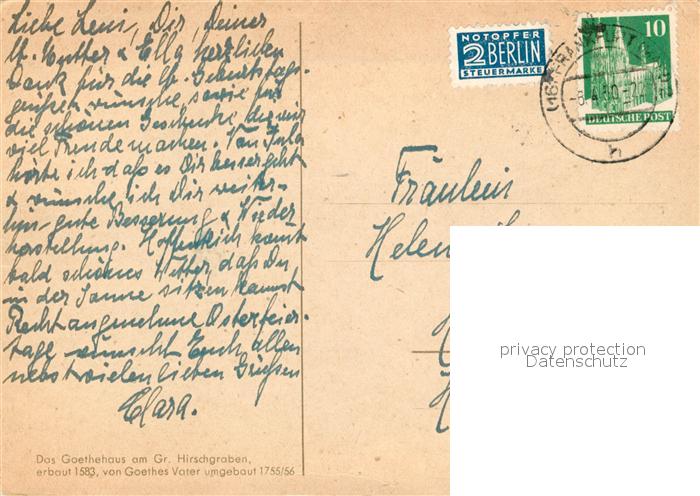 Liebe Leni, Dir, Deiner
lb. Mutter & Ella herzlichen
Dank für die lb. Geburtstags-
wünsche, sowie für
die schönen Geschenke die mir
viel Freude machen. Von
hörte ich daß es Dir besser geht
& wünsche ich Dir weiter-
hin gute Besserung & Wieder
herstellung. Hoffentlich kommt
bald schönes Wetter, daß Du
in der Sonne sitzen kannst
Recht angenehme Osterfeier-
tage wünscht Euch allen
nebst vielen lieben Grüßen
Clara.
Das Goethehaus am Gr. Hirschgraben,
erbaut 1583, von Goethes Vater umgebaut 1755/56
NOTOPFER
2 BERLIN
STEUERMARKE
10
DEUTSCHE POST
(16) FRANKFURT
h
Fräulein
privacy protection
Datenschutz